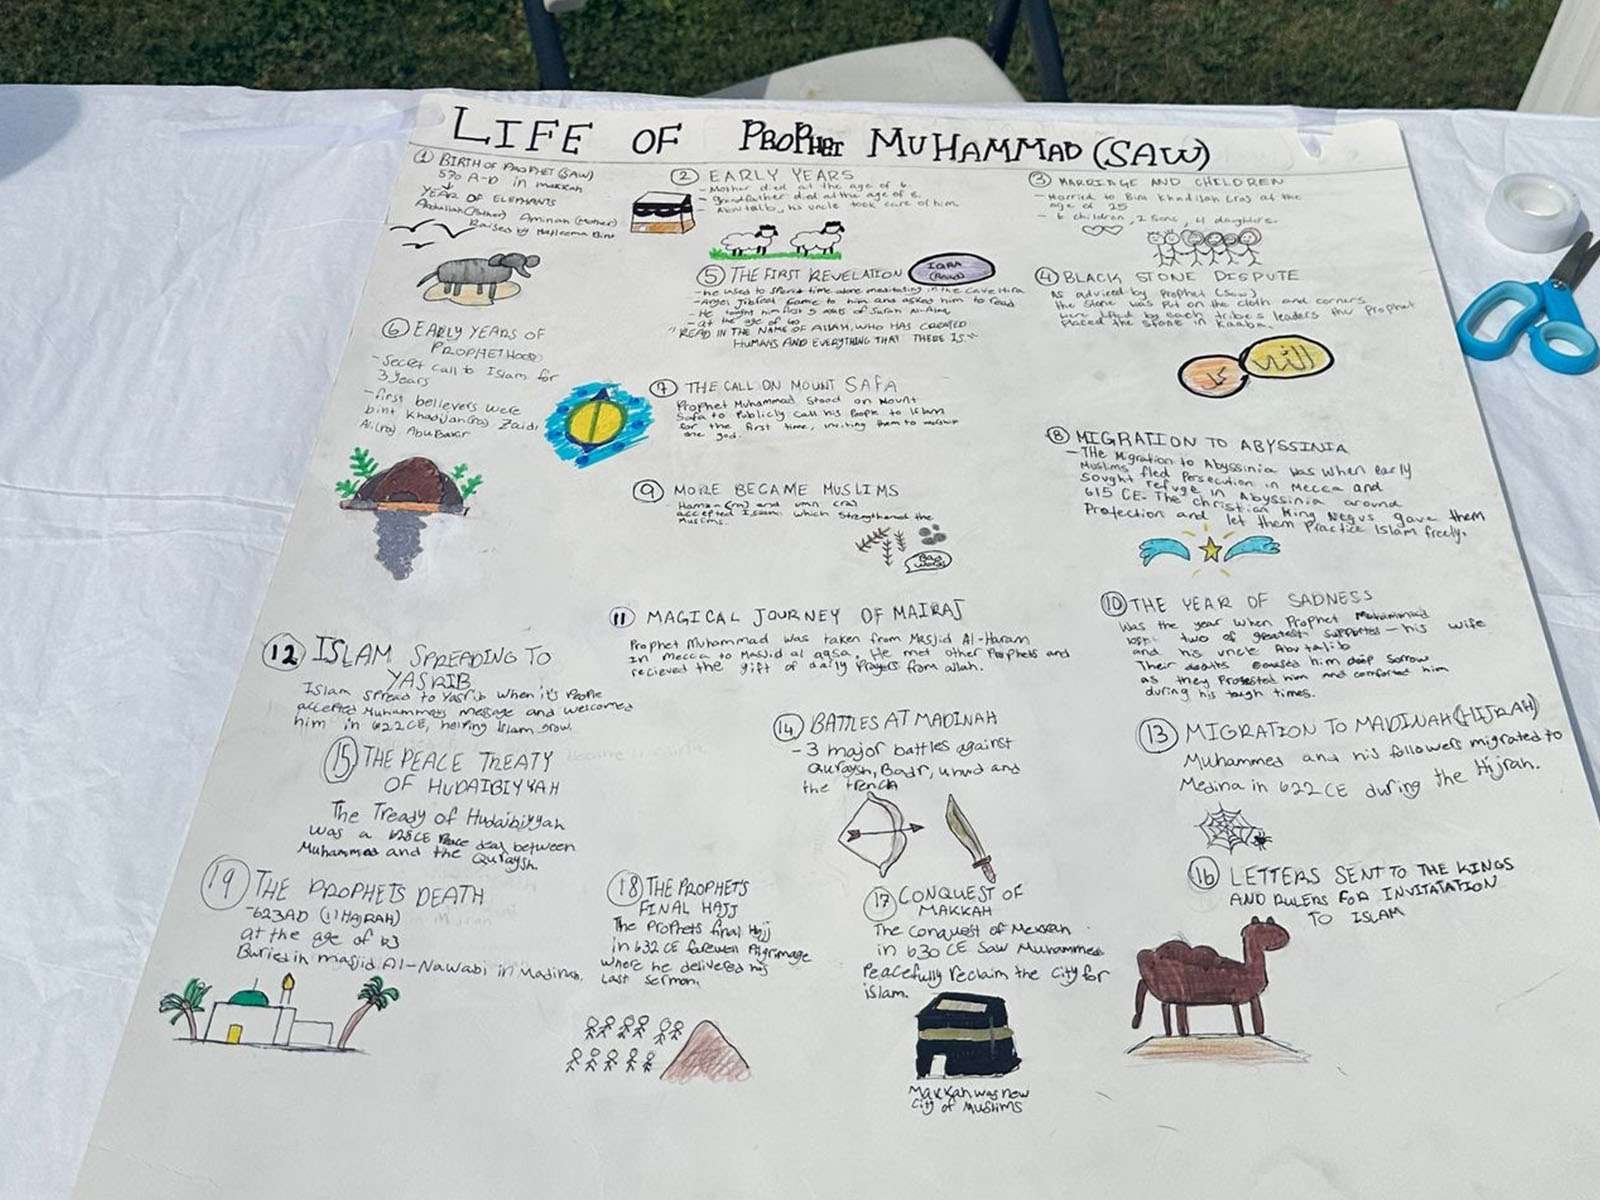 LIFE OF PROPHET MUHAMMAD (SAW)
1 BIRTH OF PROPHET (SAW)
570 A-D in makkah
YEAR OF ELEPHANTS
Abdullah (Father) Aminah (Mother)
Raised by Haleema Bint
2 EARLY YEARS
- Mother died at the age of 6
- grandfather died at the age of 8.
- Abu talib, his uncle took care of him.
3 MARRIAGE AND CHILDREN
- Married to Bint Khadijah (ra) at the
age of 25
- 6 children, 2 sons, 4 daughters.
4 BLACK STONE DISPUTE
As adviced by Prophet (saw)
the stone was put on the cloth and corners
were lifted by each tribes leaders the prophet
placed the stone in Kaaba.
الله
5 THE FIRST REVELATION
IQRA
(Read)
- He used to spend time alone meditating in the Cave Hira
- Angel Jibreal came to him and asked him to read
- He taught him first 5 ayats of Surah Al-Alaq
- at the age of 40
"READ IN THE NAME OF ALLAH, WHO HAS CREATED
HUMANS AND EVERYTHING THAT THERE IS"
6 EARLY YEARS OF
PROPHETHOOD
- Secret call to Islam for
3 years
- first believers were
bint Khadijah (ra) Zaid
Ali (ra) Abu Bakar
7 THE CALL ON MOUNT SAFA
Prophet Muhammad stood on Mount
Safa to Publicly call his People to Islam
for the first time, inviting them to worship
one god.
8 MIGRATION TO ABYSSINIA
- The Migration to Abyssinia was when early
Muslims fled Persecution in Mecca and
sought refuge in Abyssinia around
615 CE. The christian King Negus gave them
Protection and let them Practice Islam freely.
9 MORE BECAME MUSLIMS
Hamza (ra) and umr (ra)
accepted Islam which strengthened the
Muslims.
Bad
words
10 THE YEAR OF SADNESS
Was the year when Prophet Muhammad
lost two of greatest supporters - his wife
and his uncle Abu talib
Their deaths caused him deep Sorrow
as they Protected him and comforted him
during his tough times.
11 MAGICAL JOURNEY OF MAIRAJ
Prophet Muhammad was taken from Masjid Al-Haram
In Mecca to Masjid al aqsa. He met other Prophets and
recieved the gift of daily Prayers from allah.
12 ISLAM SPREADING TO
YASRIB
Islam spread to Yasrib when it's People
accepted Muhammad's message and welcomed
him in 622CE, helping Islam grow.
13 MIGRATION TO MADINAH (HIJRAH)
Muhammed and his followers migrated to
Medina in 622 CE during the Hijrah.
14 BATTLES AT MADINAH
- 3 major battles against
Quraysh, Badr, Uhud and
the trench
15 THE PEACE TREATY
OF HUDAIBIYYAH
The Tready of Hudaibiyyah
was a 628CE Peace deal between
Muhammad and the Quraysh.
16 LETTERS SENT TO THE KINGS
AND RULERS FOR INVITATATION
TO ISLAM
17 CONQUEST OF
MAKKAH
The Conquest of Mekkah
in 630 CE Saw Muhammed
Peacefully reclaim the city for
islam.
Makkah was new
city of Muslims
18 THE PROPHETS
FINAL HAJJ
The Prophets final Hajj
in 632 CE farewell Pilgrimage
where he delivered his
Last Sermon
19 THE PROPHETS DEATH
- 623AD (11 HAJRAH)
at the age of 63
Buried in masjid Al-Nawabi in Madinah.